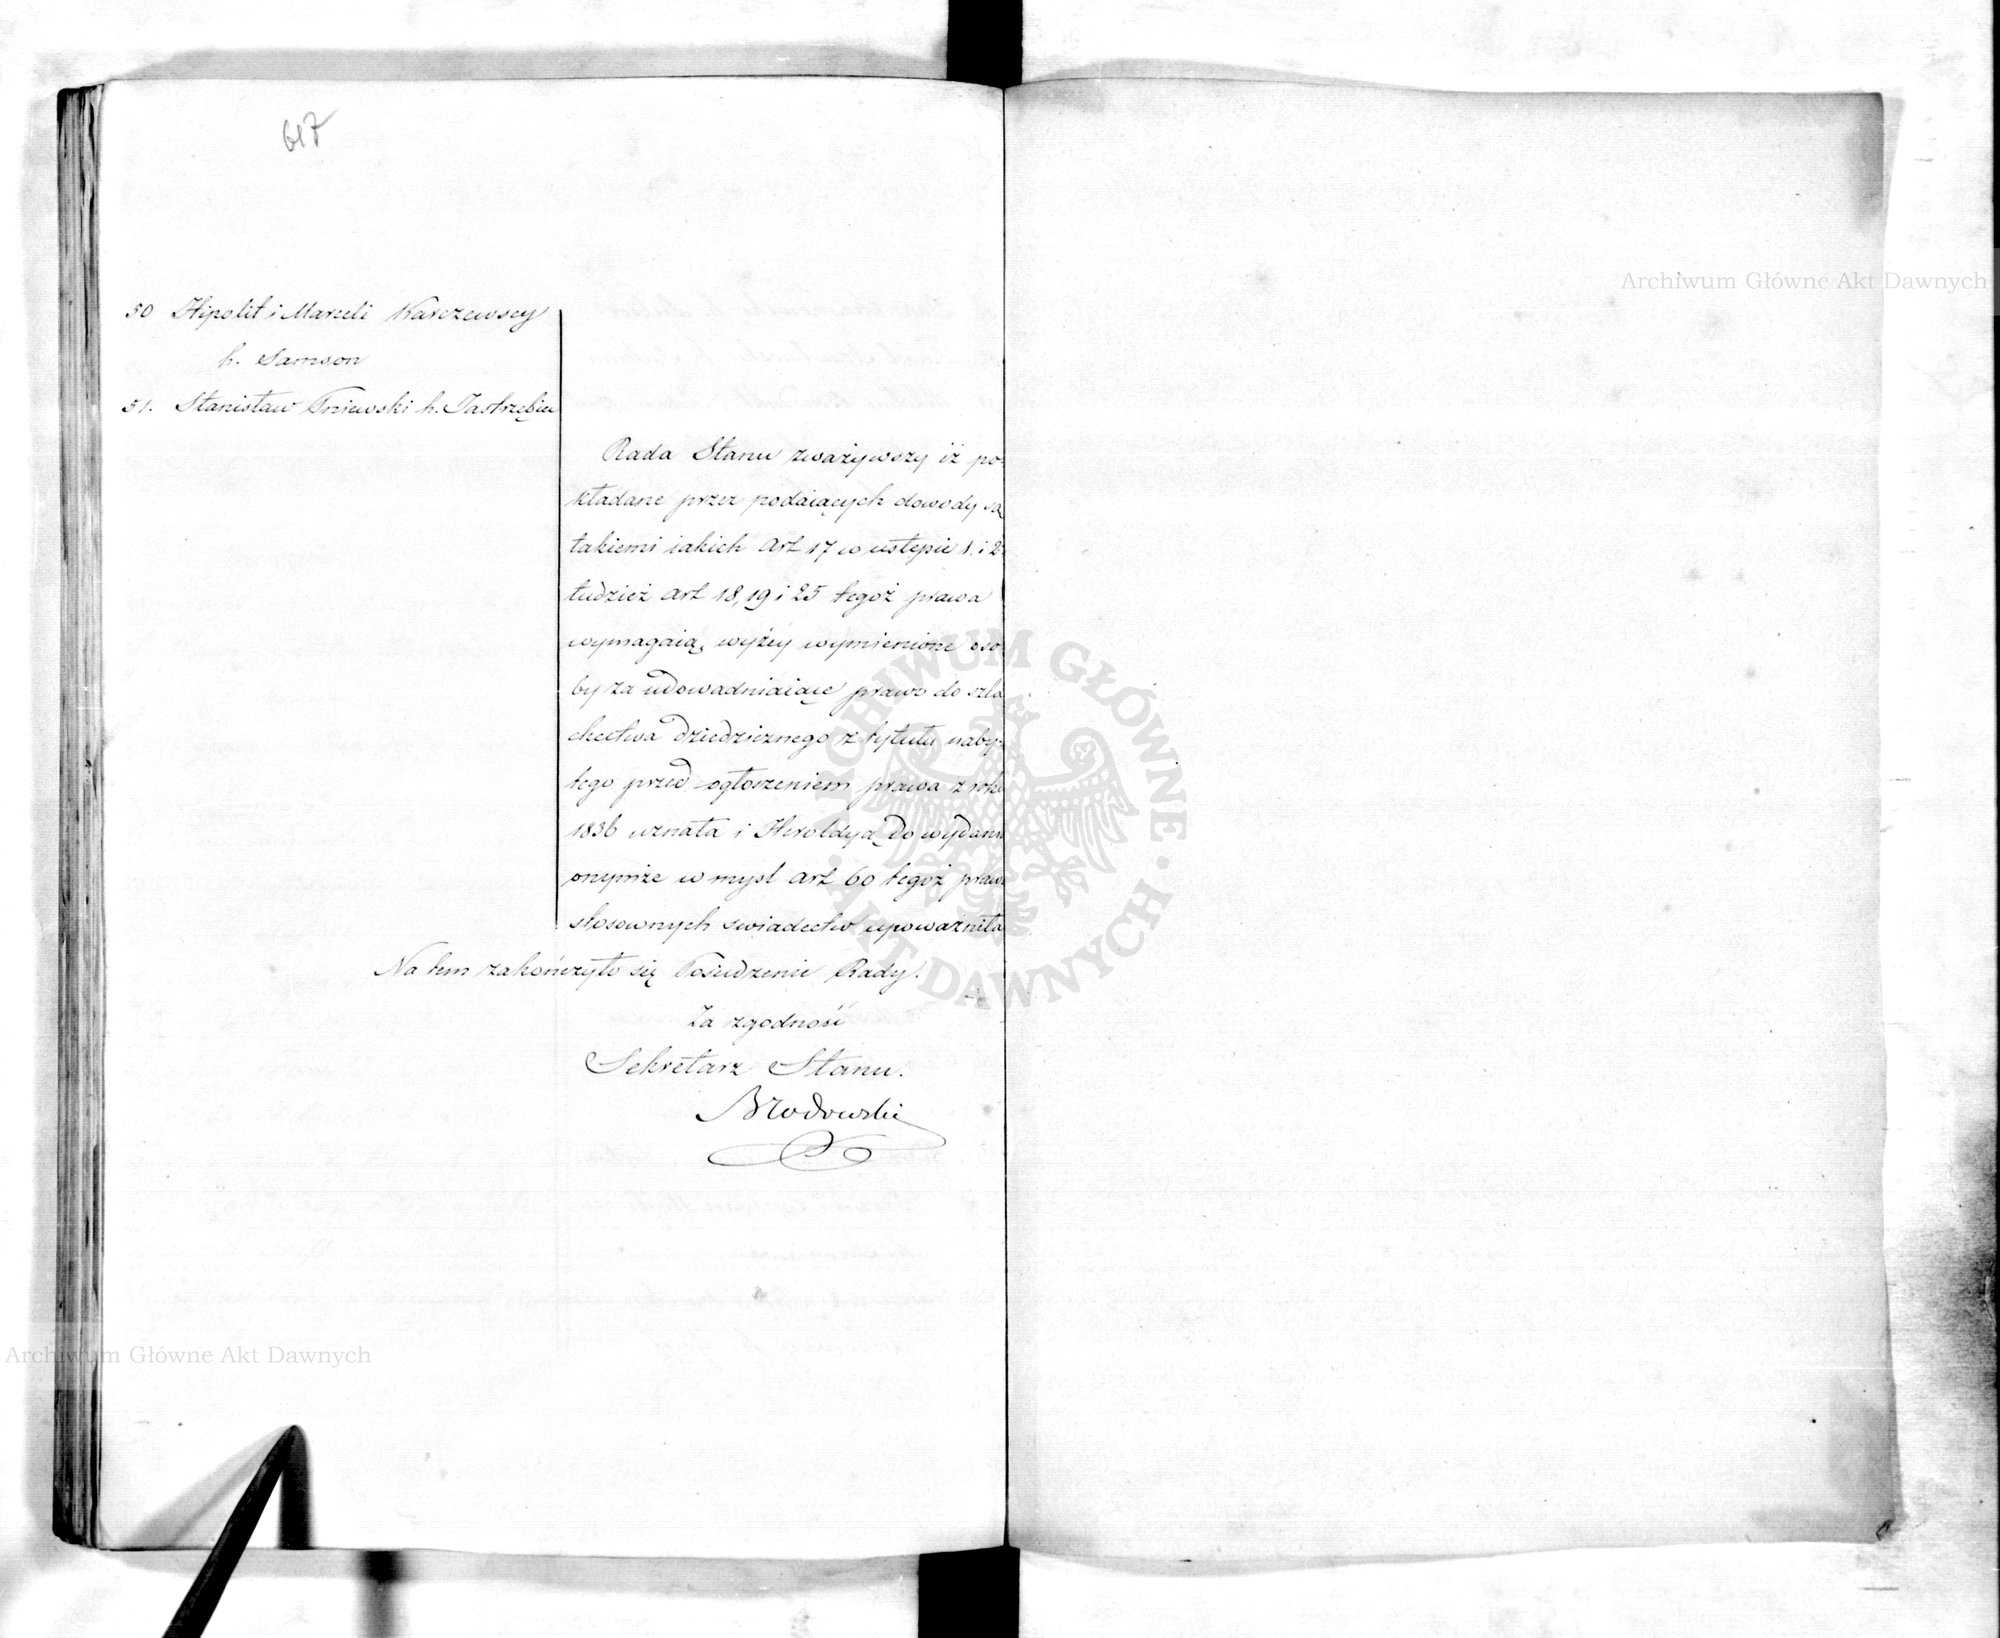 617
50 Hipolit i Marceli Karczewscy
h. Samson
51. Stanisław Pniewski h. Jastrzębiec
Rada Stanu zważywszy iż po=
kładane przez podaiących dowody są
takiemi iakich Art 17 w ustępie 1. i 2
tudzież Art 18, 19 i 25 tegoż prawa
wymagaią, wyżey wymienione oso
by za udowadniaiące prawo do szla
chectwa dziedzicznego z tytułu naby=
tego przed ogłoszeniem prawa z roku
1836 uznała i Heroldyą do wydania
onymże w myśl Art 60 tegoż prawa
stosownych swiadectw upoważniła
Na tem zakończyło się Posiedzenie Rady.
Za zgodność
Sekretarz Stanu.
Brodowski
Archiwum Główne Akt Dawnych
ARCHIWUM GŁÓWNE
AKT DAWNYCH
Archiwum Główne Akt Dawnych